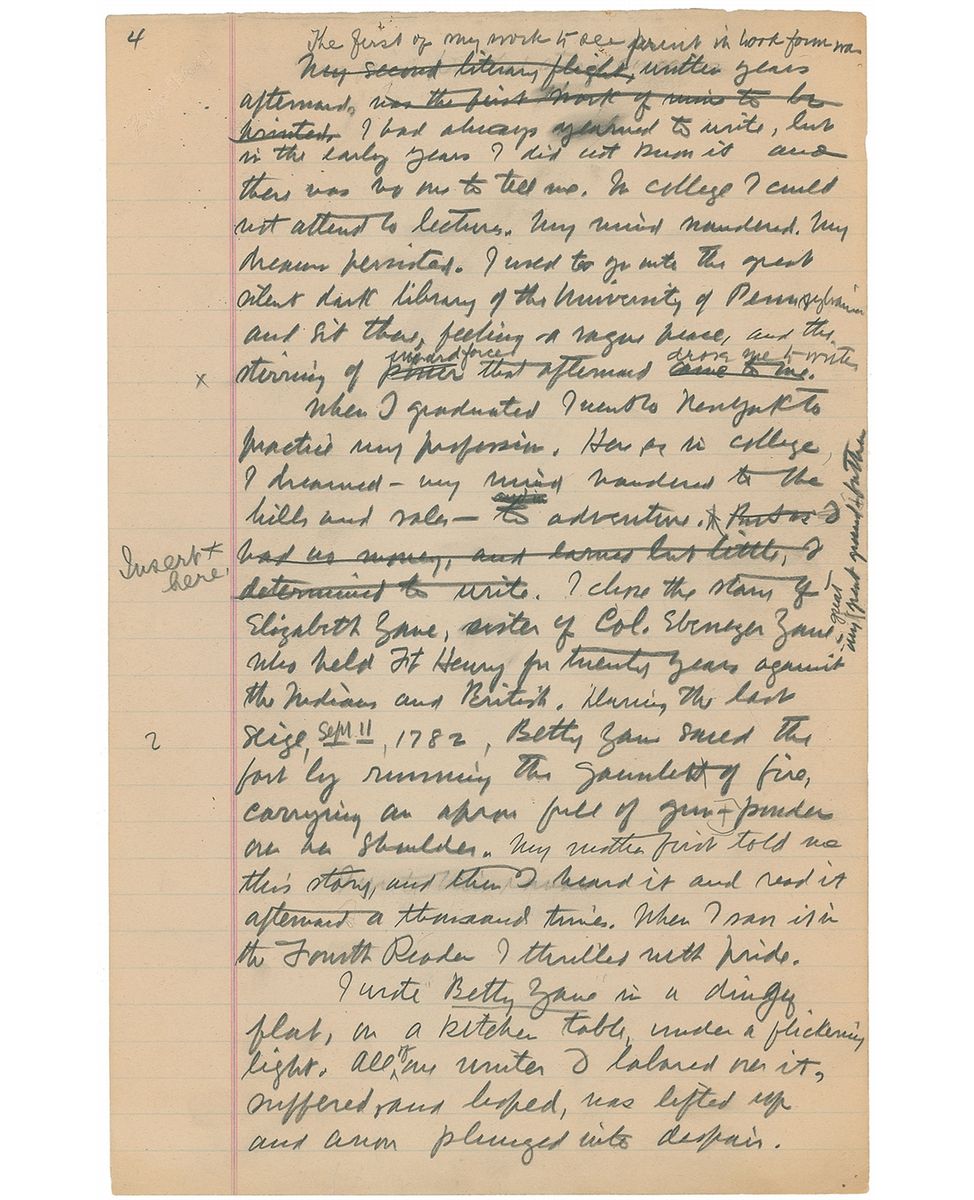 4
The first of my work to see print in book form was
My second literary flight, written years
afterward, was the first work of mine to be
printed. I had always yearned to write, but
in the early years I did not know it and
there was no one to tell me. In college I could
not attend to lectures. My mind wandered. My
dreams persisted. I used to go into the great
silent dark library of the University of Pennsylvania
and sit there, feeling a vague peace, and the
inward force drove me to write
x stirring of power that afterward came to me.
When I graduated I went to New York to
practice my profession. Here, as in college,
I dreamed – my mind wandered to the
and in
hills and vales – to adventure. x But as I
Insert x here. had no money, and earned but little, I
determined to write. I chose the story of
Elizabeth Zane, sister of Col. Ebenezer Zane,
my great-great grandfather
who held Ft Henry for twenty years against
the Indians and British. During the last
2 seige, Sept 11, 1782, Betty Zane saved the
fort by running the gauntlet of fire,
carrying an apron full of gun-powder
on her shoulder. My mother first told me
this story, and then I heard it and read it
afterward a thousand times. When I saw it in
the Fourth Reader I thrilled with pride.
I wrote Betty Zane in a dingy
flat, on a kitchen table, under a flickering
light. All of one winter I labored over it,
suffered, and hoped, was lifted up
and anon plunged into despair.